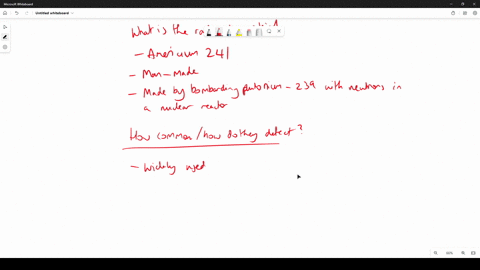 Microsoft Whiteboard
Untitled whiteboard
What is the
- Americium 241
- Man-made
- Made by bombarding plutonium - 239 with neutrons in
a nuclear reactor
How common/how do they detect?
- Widely used